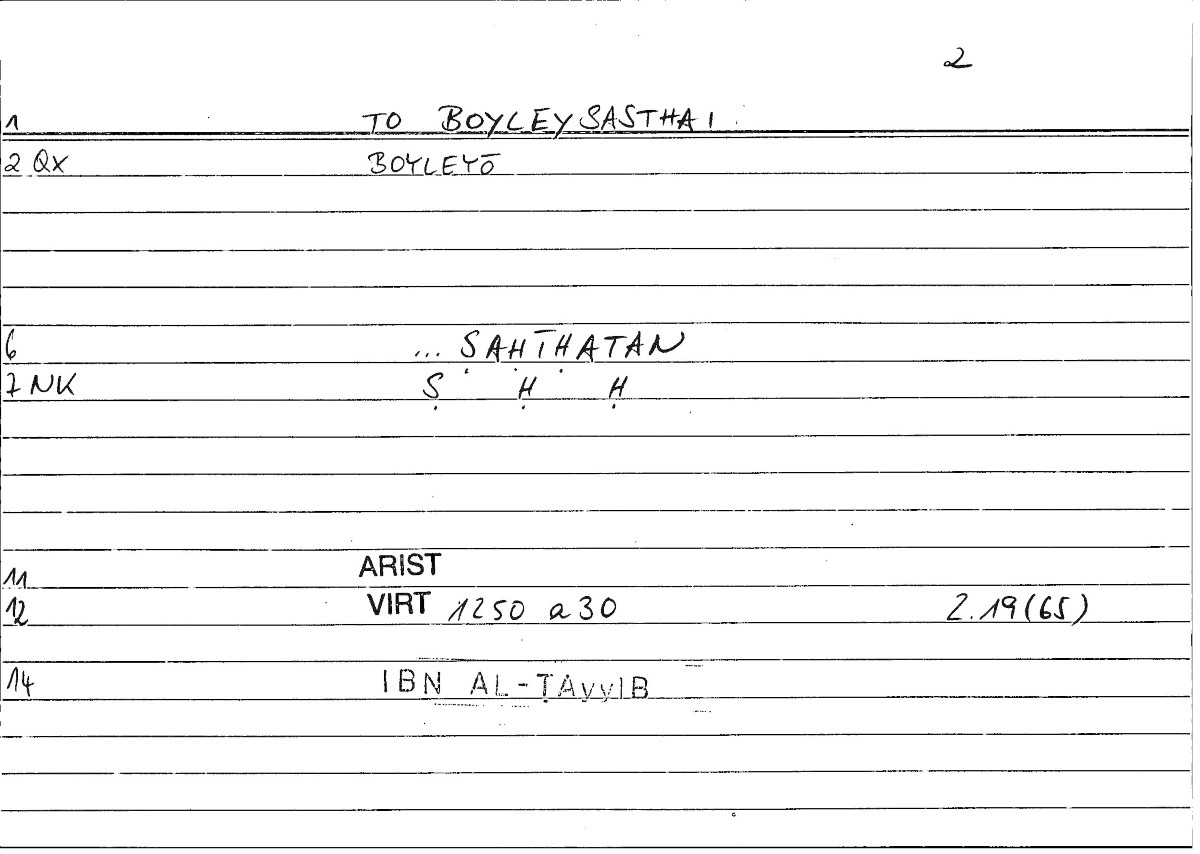 2
1 TO BOYLEYSASTHAI
2 QX BOYLEYŌ
6 ... ṢAḤĪḤATAN
7 NK Ṣ Ḥ Ḥ
11 ARIST
12 VIRT 1250 a 30 2.19(65)
14 IBN AL-ṬAyyIB